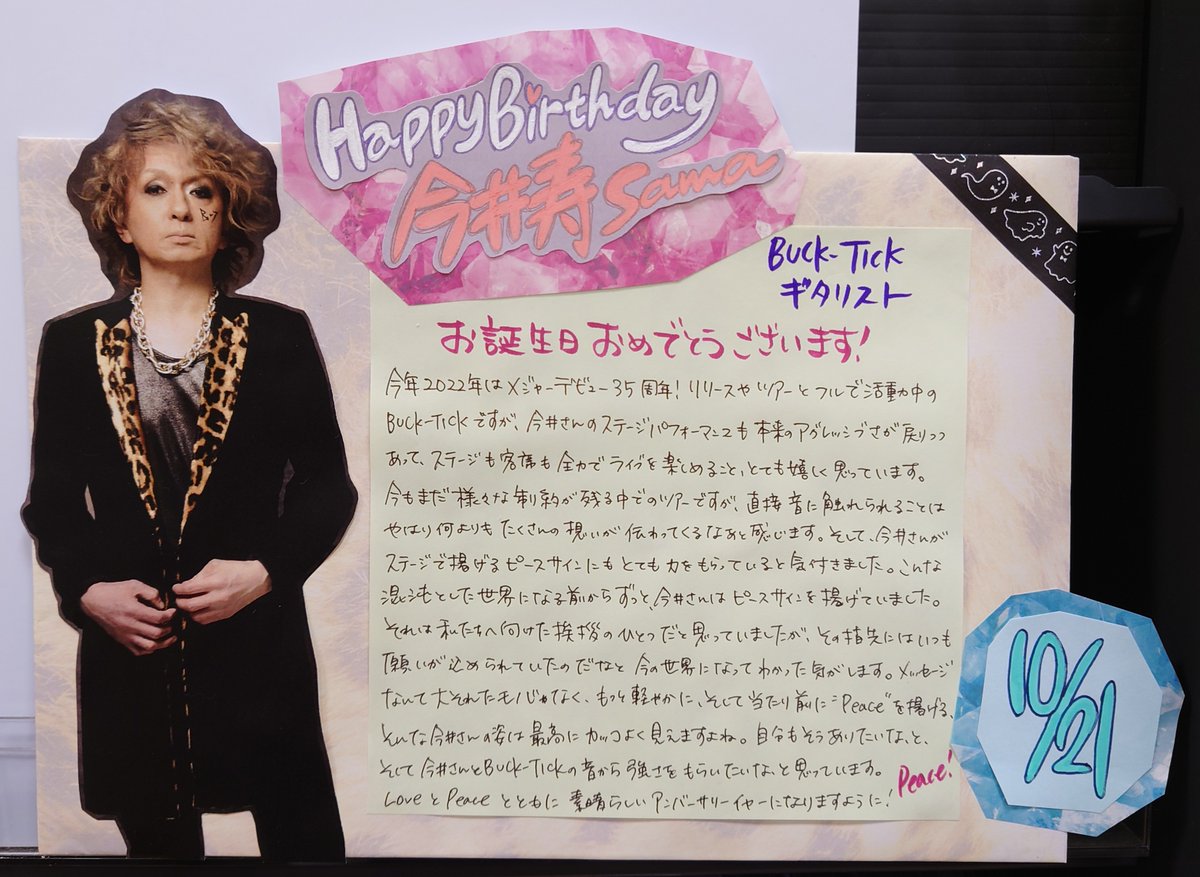 Happy Birthday
今井寿 sama
BUCK-TICK
ギタリスト
お誕生日おめでとうございます!
今年2022年はメジャーデビュー35周年!リリースやツアーとフルで活動中の
BUCK-TICKですが、今井さんのステージパフォーマンスも本来のアグレッシブさが戻りつつ
あって、ステージも客席も全力でライブを楽しめること、とても嬉しく思っています。
今もまだ様々な制約が残る中でのツアーですが、直接音に触れられることは
やはり何よりもたくさんの想いが伝わってくるなあと感じます。そして、今井さんが
ステージで掲げるピースサインにもとても力をもらっていると気付きました。こんな
混とんとした世界になる前からずっと、今井さんはピースサインを掲げていました。
それは私たちへ向けた挨拶のひとつだと思っていましたが、その指先にはいつも
願いが込められていたのだなと今の世界になってわかった気がします。メッセージ
なんて大それたモノじゃなく、もっと軽やかに、そして当たり前に"Peace"を掲げる、
そんな今井さんの姿は最高にカッコよく見えますよね。自分もそうありたいな、と、
そして今井さんとBUCK-TICKの音から強さをもらいたいな、と思っています。
LoveとPeaceとともに素晴らしいアニバーサリーイヤーになりますように!
Peace!
10/21